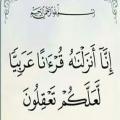 بسم الله الرحمن الرحيم
إِنَّآ أَنزَلْنَٰهُ قُرْءَٰنًا عَرَبِيًّا
لَّعَلَّكُمْ تَعْقِلُونَ